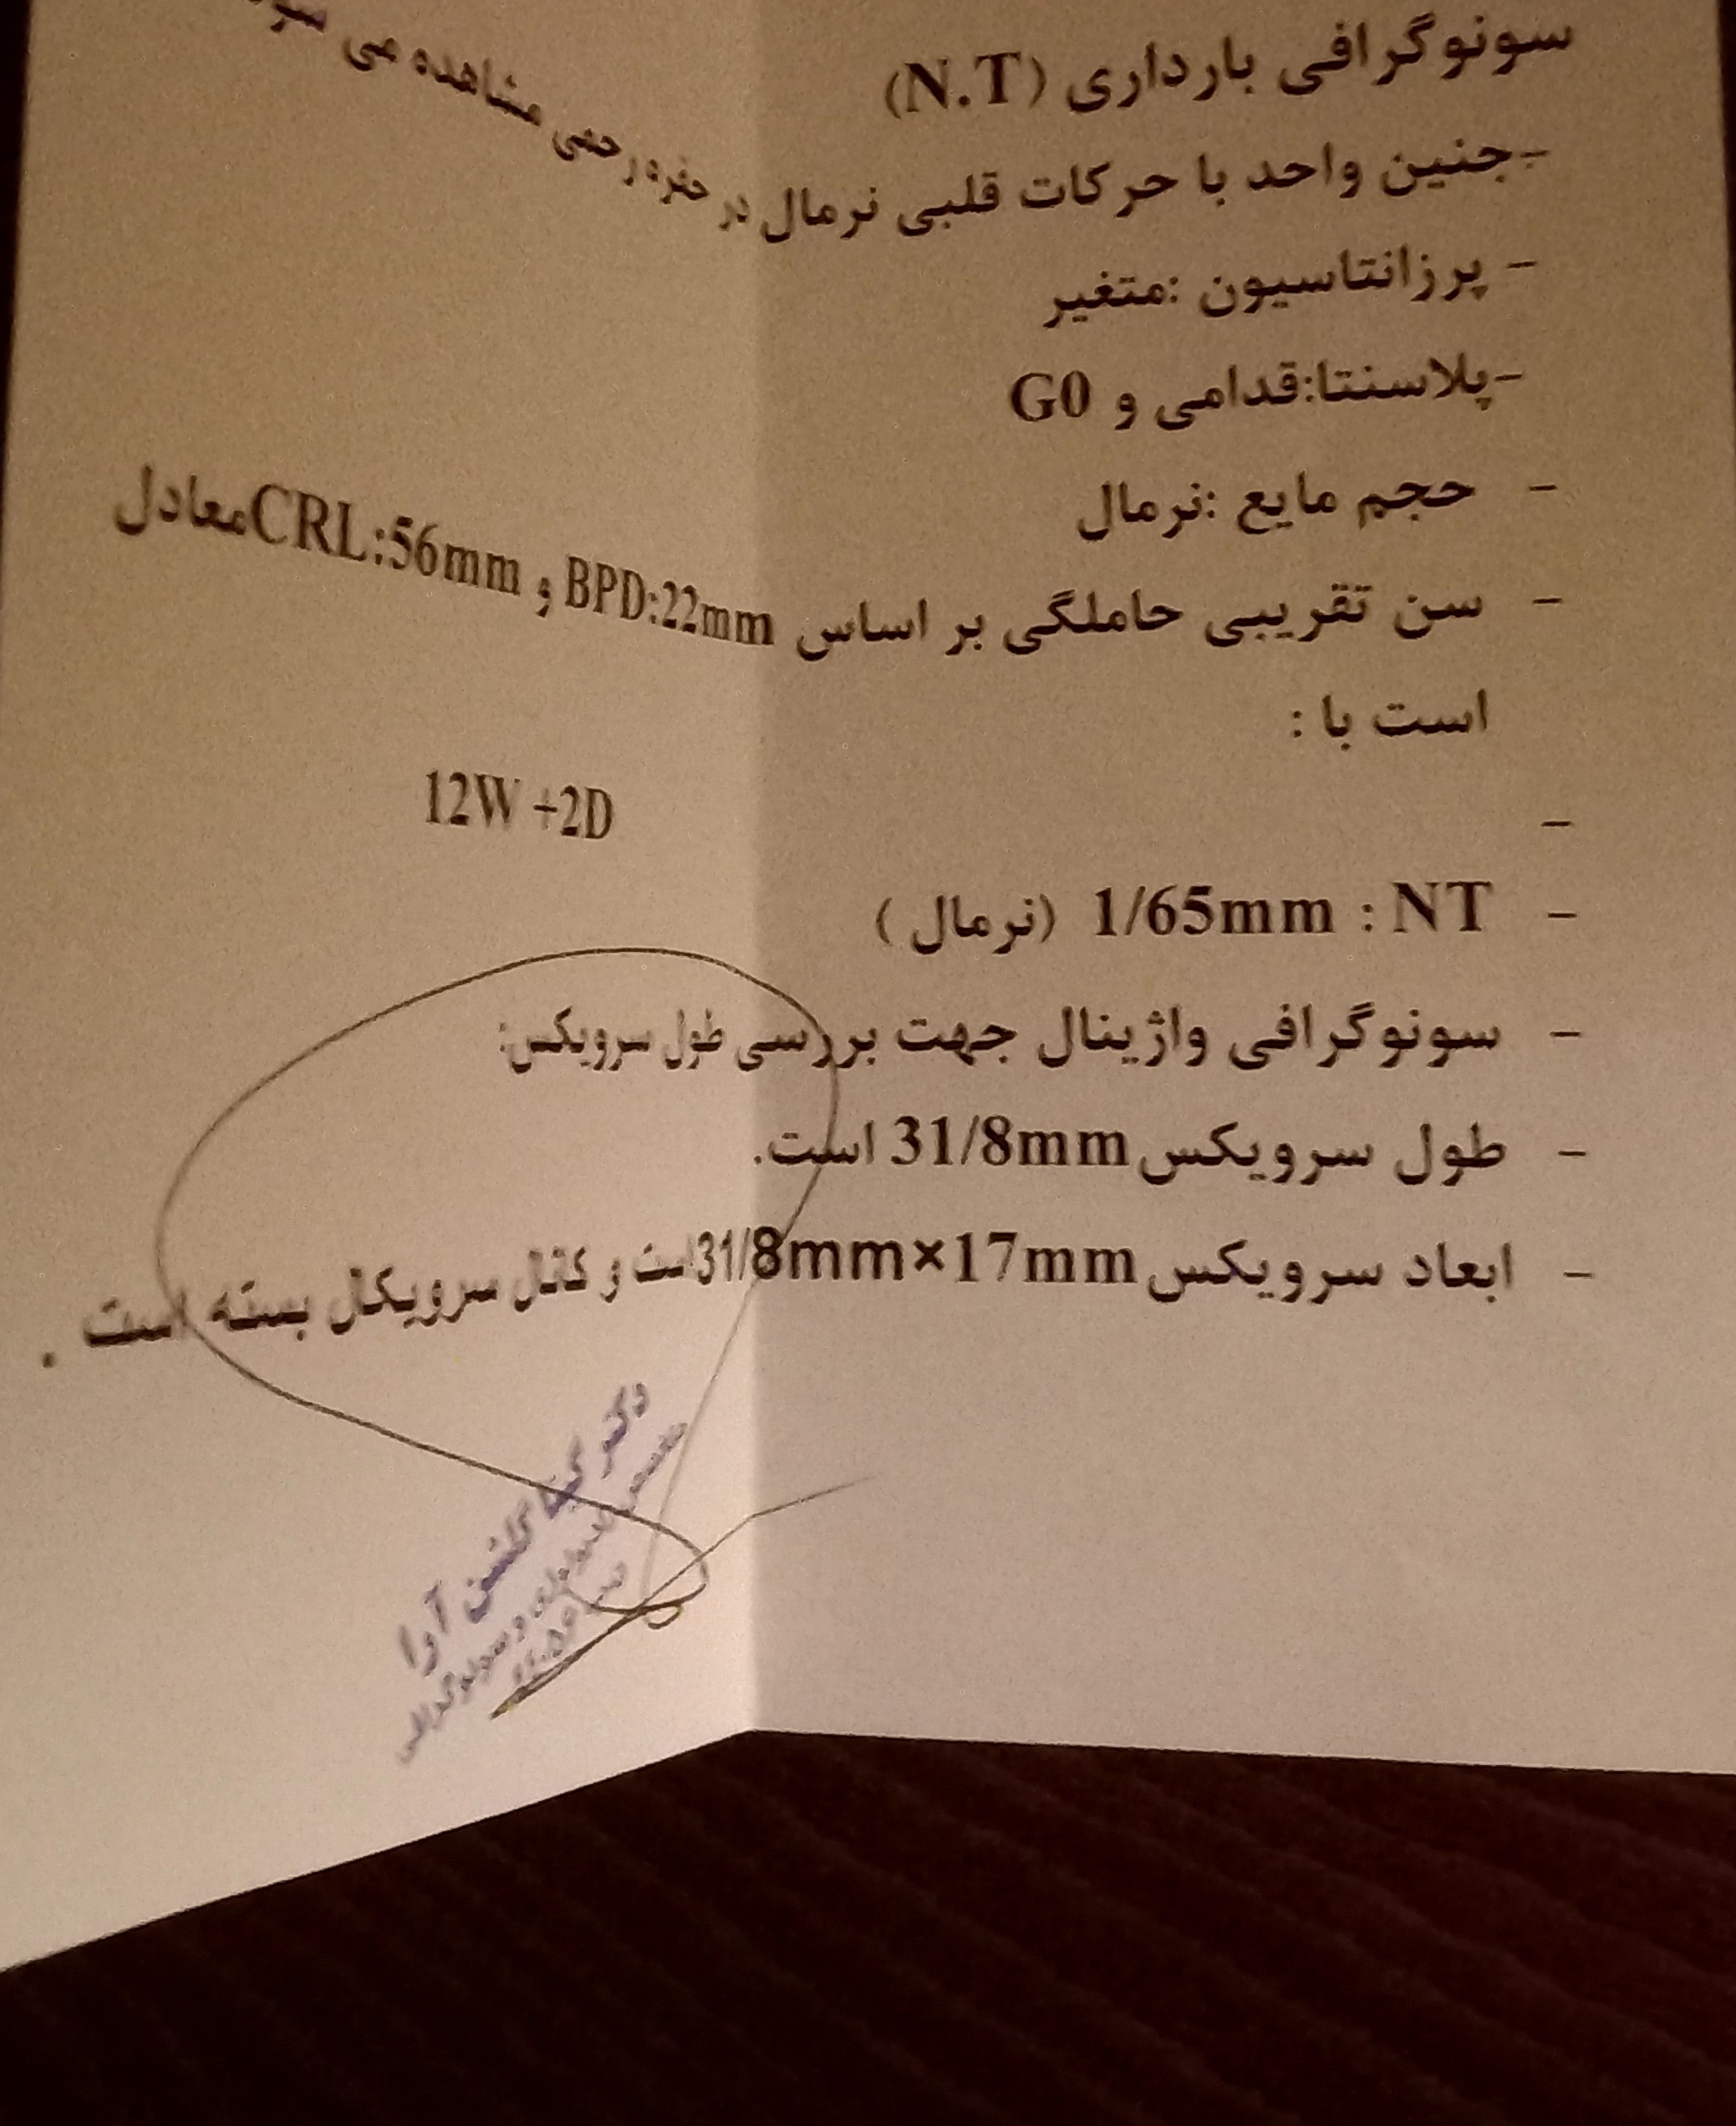 سونوگرافی بارداری (N.T)
-جنین واحد با حرکات قلبی نرمال در حفره رحمی مشاهده می
- پرزانتاسیون :متغیر
-پلاسنتا:قدامی و G0
- حجم مایع :نرمال
- سن تقریبی حاملگی بر اساس BPD:22mm و CRL:56mm معادل
است با :
-
12W +2D
- NT : 1/65mm (نرمال )
- سونوگرافی واژینال جهت بررسی طول سرویکس:
- طول سرویکس 31/8mm است.
- ابعاد سرویکس 31/8mm×17mm است و کانال سرویکال بسته است .
دکتر گیتا گلشن آرا
متخصص رادیولوژی و سونوگرافی